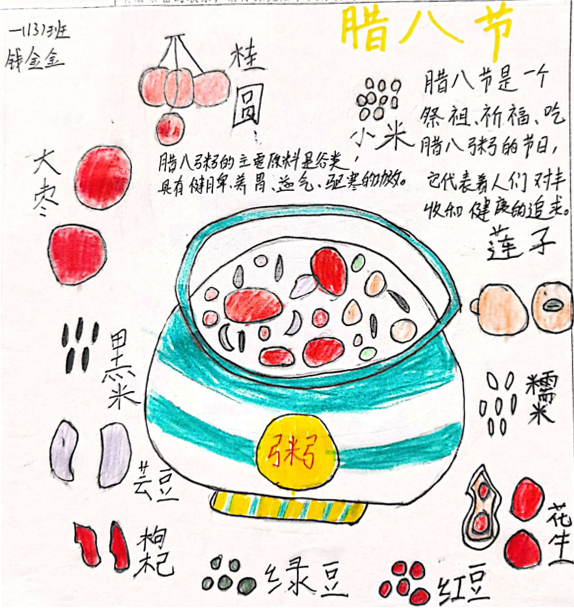 腊八节
一(3)班
钱金金
桂圆
小米
腊八节是一个
祭祖、祈福、吃
腊八粥的节日,
它代表着人们对丰
收和健康的追求。
腊八粥的主要原料是谷类,
具有健脾、养胃、益气、驱寒的功效。
大枣
莲子
黑米
糯米
粥
芸豆
花生
枸杞
绿豆
红豆